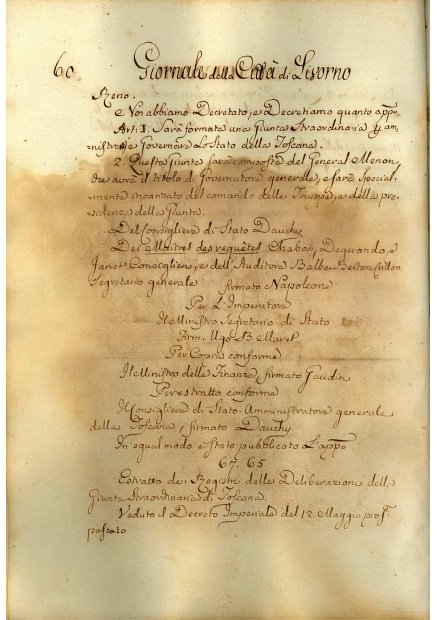 60 Giornale della Città di Livorno
Reno.
e Noi abbiamo Decretato, e Decretiamo quanto appº
Art: I. Sarà formata una Giunta Straordinaria am-
ministra e Governerà Lo Stato della Toscana.
2. Questa Giunta sarà composta del General Menou,
che avrà il titolo di Governatore generale, e sarà special-
mente incaricato del comando delle Truppe, e della pre-
sidenza della Giunta.
Del Consigliere di Stato Dauchy
Dei Maitres des requètes Chaban, Degerondo, e
Janet Consiglieri, e dell'Auditore Balbe-Berton Crillon
Segretario generale firmato Napoleone
Per L'Imperatore
Il Ministro Segretario di Stato
Firm. Ugo B. Maret
Per Copia conforme
Il Ministro delle Finanze, firmato Gaudin
Per estratto conforme
Il Consigliere di Stato Amministratore generale
della Toscana, firmato Dauchy
In equal modo è Stato pubblicato L'appº
67. 65
Estratto dei Registri della Deliberazioni della
Giunta Straordinaria di Toscana.
Veduto il Decreto Imperiale del 12. Maggio prosº
passato